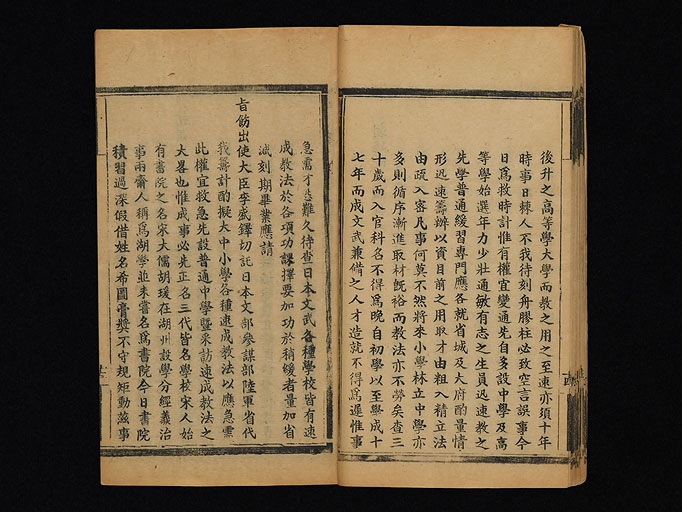 後升之高等學大學而教之用之至速亦須十年
時事日棘人不我待刻舟膠柱必致空言誤事今
日爲救時計惟有權宜變通先自多設中學及高
等學始選年力少壯通敏有志之生員迅速教之
先學普通緩習專門應各就省城及大府酌量情
形迅速籌辦以資目前之用取才由粗入精立法
由疏入密凡事何莫不然將來小學林立中學亦
多則循序漸進取材旣裕而教法亦不勞矣查三
十歲而入官科名不得爲晚自初學以至學成十
七年而成文武兼備之人才造就不得爲遲惟事
急需才甚難久待查日本文武各種學校皆有速
成教法於各項功課擇要加功於稍緩者量加省
減刻期畢業應請
旨飭出使大臣李盛鐸切託日本文部參謀部陸軍省代
我籌計酌擬大中小學各種速成教法以應急需
此權宜救急先設普通中學暨采訪速成教法之
大畧也惟成事必先正名三代皆名學校宋人始
有書院之名宋大儒胡瑗在湖州設學分經義治
事兩齋人稱爲湖學並未嘗名爲書院今日書院
積習過深假借姓名希圖膏獎不守規矩動滋事